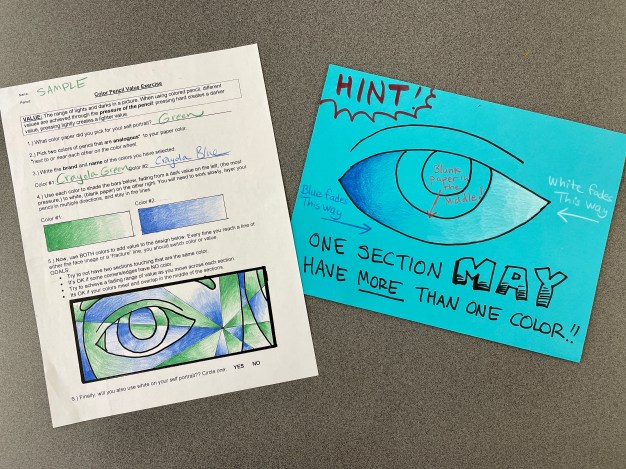 Name: SAMPLE
Period:
Color Pencil Value Exercise
VALUE: The range of lights and darks in a picture. When using colored pencil, different
values are achieved through the pressure of the pencil: pressing hard creates a darker
value, pressing lightly creates a lighter value.
1.) What color paper did you pick for your self portrait? Green
2.) Pick two colors of pencil that are analogous* to your paper color.
*next to or near each other on the color wheel
3.) Write the brand and name of the colors you have selected.
Color #1: Crayola Green Color #2: Crayola Blue
4.) Use each color to shade the bars below, fading from a dark value on the left, (the most
pressure) to white, (blank paper) on the other right. You will need to work slowly, layer your
pencil in multiple directions, and stay in the lines.
Color #1: Color #2:
5.) Now, use BOTH colors to add value to the design below. Every time you reach a line of
either the face image or a "fracture" line, you should switch color or value.
GOALS:
• Try to not have two sections touching that are the same color.
• It's OK if some corners/edges have NO color.
• Try to achieve a fading range of value as you move across each section.
• It's OK if your colors meet and overlap in the middle of the sections.
6.) Finally, will you also use white on your self portrait?? Circle one. YES NO
HINT!
Blank
Paper in
the
Middle!
Blue fades
This way
White fades
This way
ONE SECTION MAY
HAVE MORE THAN ONE COLOR!!